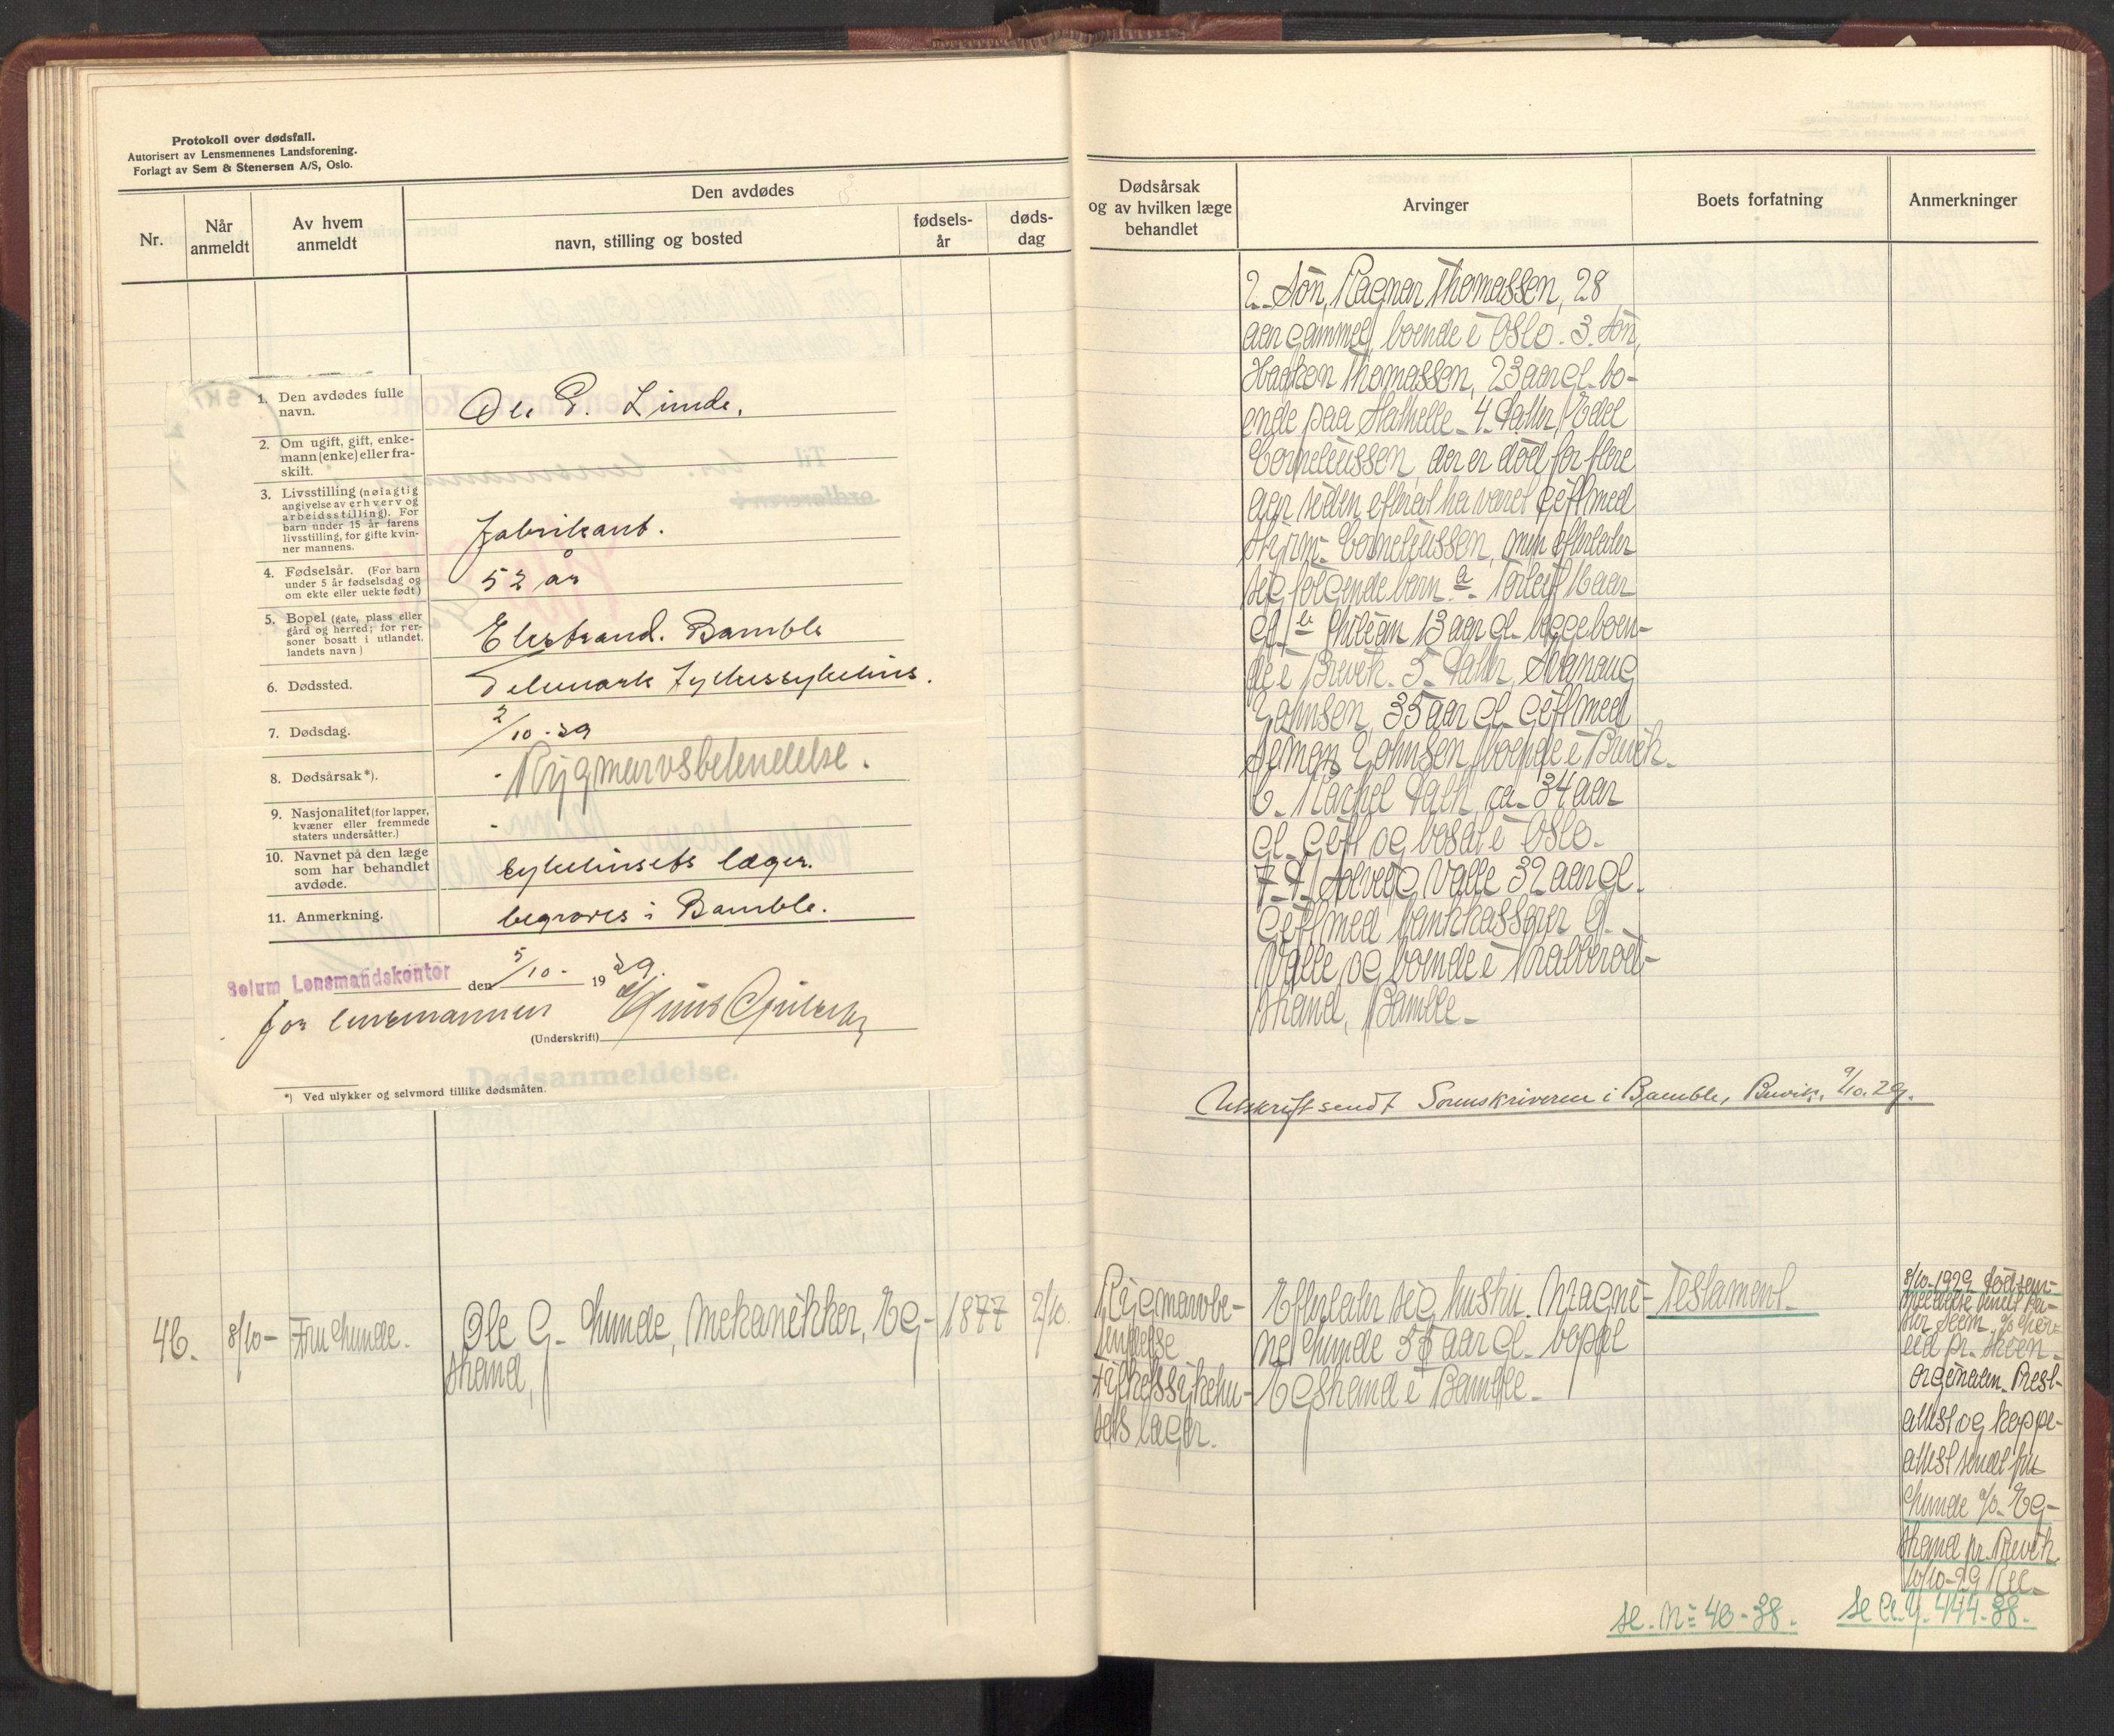 Protokoll over dødsfall.
Autorisert av Lensmennenes Landsforening.
Forlagt av Sem & Stenersen A/S, Oslo.
Nr.
Når anmeldt
Av hvem anmeldt
Den avdødes
navn, stilling og bosted
fødsels-
år
døds-
dag
1. Den avdødes fulle
navn.
Ole G. Linde,
2. Om ugift, gift, enke-
mann (enke) eller fra-
skilt.
3. Livsstilling (nøiagtig
angivelse av erhverv og
arbeidsstilling). For
barn under 15 år farens
livsstilling, for gifte kvin-
ner mannens.
fabrikant.
4. Fødselsår. (For barn
under 5 år fødselsdag og
om ekte eller uekte født)
52 år
5. Bopel (gate, plass eller
gård og herred; for per-
soner bosatt i utlandet,
landets navn)
Bamble
6. Dødssted.
Telemark fylkessykehus.
7. Dødsdag.
2/10-29
8. Dødsårsak*).
Rygmarvsbetendelse.
9. Nasjonalitet (for lapper,
kvæner eller fremmede
staters undersåtter.)
-
10. Navnet på den læge
som har behandlet
avdøde.
sykehusets læger.
11. Anmerkning.
begraves i Bamble.
Solum Lensmandskontor den 5/10- 1929.
for lensmannen
(Underskrift)
Dødsanmeldelse.
*) Ved ulykker og selvmord tillike dødsmåten.
46.
8/10-
Fru Lunde.
Ole G. Lunde, Mekanikker, Eg-
strand,
1877
2/10.
Dødsårsak
og av hvilken læge
behandlet
Arvinger
Boets forfatning
Anmerkninger
2. Søn, Ragnar Thomassen, 28
aar gammel, boende i Oslo. 3. Søn,
Haakon Thomassen, 23 aar gl. bo-
ende paa Stathelle. 4. Datter, Edel
Corneliussen, der er død for flere
aar siden efterat ha været gift med
Corneliussen, men efterlater
sig følgende barn a. Torleif 16 aar
gl. b. 13 aar gl. begge boen-
de i Brevik. 5. Datter,
Johnsen, 35 aar gl. gift med
Johnsen, boende i Brevik.
6. Rachel ca. 34 aar
gl. gift og bosat i Oslo.
7. D. Solveig Valle 32 aar gl.
gift med bankkasserer G.
Valle og boende i
strand, Bamble.
Utskrift sendt Sorenskriveren i Bamble, Brevik, 9/10.29.
Rygmarvbe-
tendelse
Fylkessykehu-
sets læger.
Efterlater sig hustru Magni-
Lunde 55 aar gl. bopæl
Egstrand i Bamble.
Testament.
8/10-1929 Dødsan-
meldelse sendt
pr. Skien.
Originalen. Prest-
attest og koppe-
attest sendt fru
Lunde Eg-
strand pr. Brevik
10/10-29
se. No 40-38.
444-38.